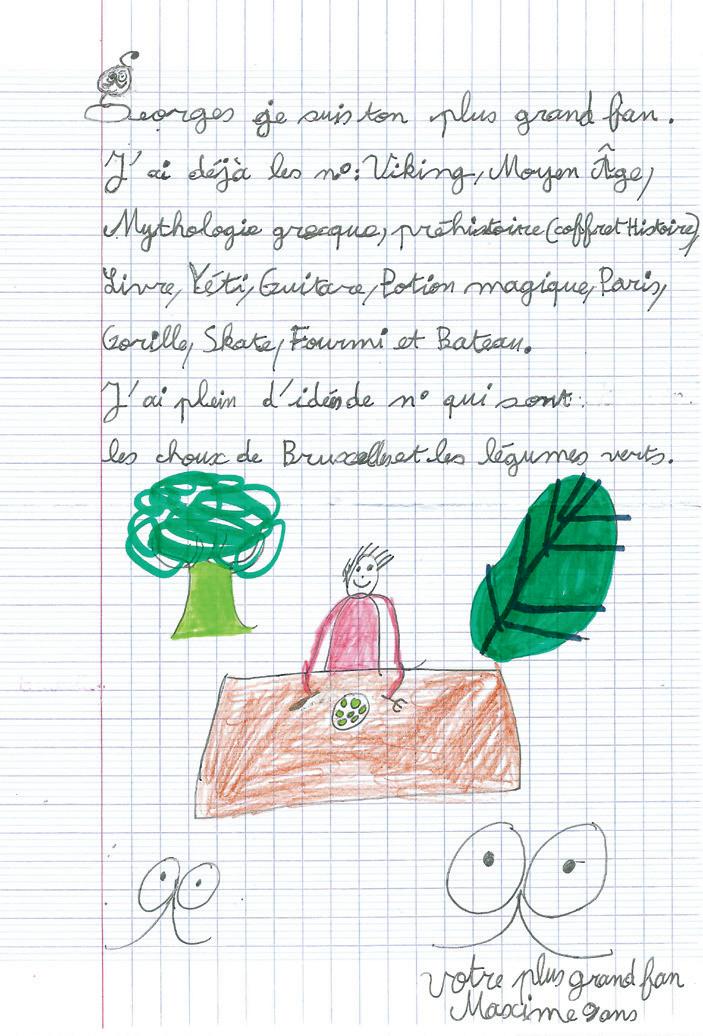 Georges je suis ton plus grand fan.
J'ai déjà les n°: Viking, Moyen Âge,
Mythologie grecque, préhistoire (coffret Histoire)
Livre, Yéti, Guitare, Potion magique, Paris,
Gorille, Skate, Fourmi et Bateau.
J'ai plein d'idées de n° qui sont:
les choux de Bruxelles et les légumes verts.
votre plus grand fan
Maxime 9 ans